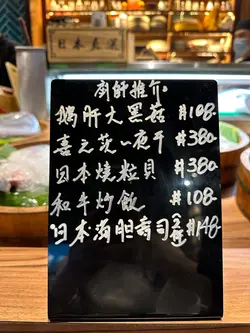 日本直送
廚師推介
鵝肝大黑菇 $108-
喜之次一夜干 $380-
日本燒粒貝 $380-
和牛炒飯 $108-
日本海胆寿司2件 $148-